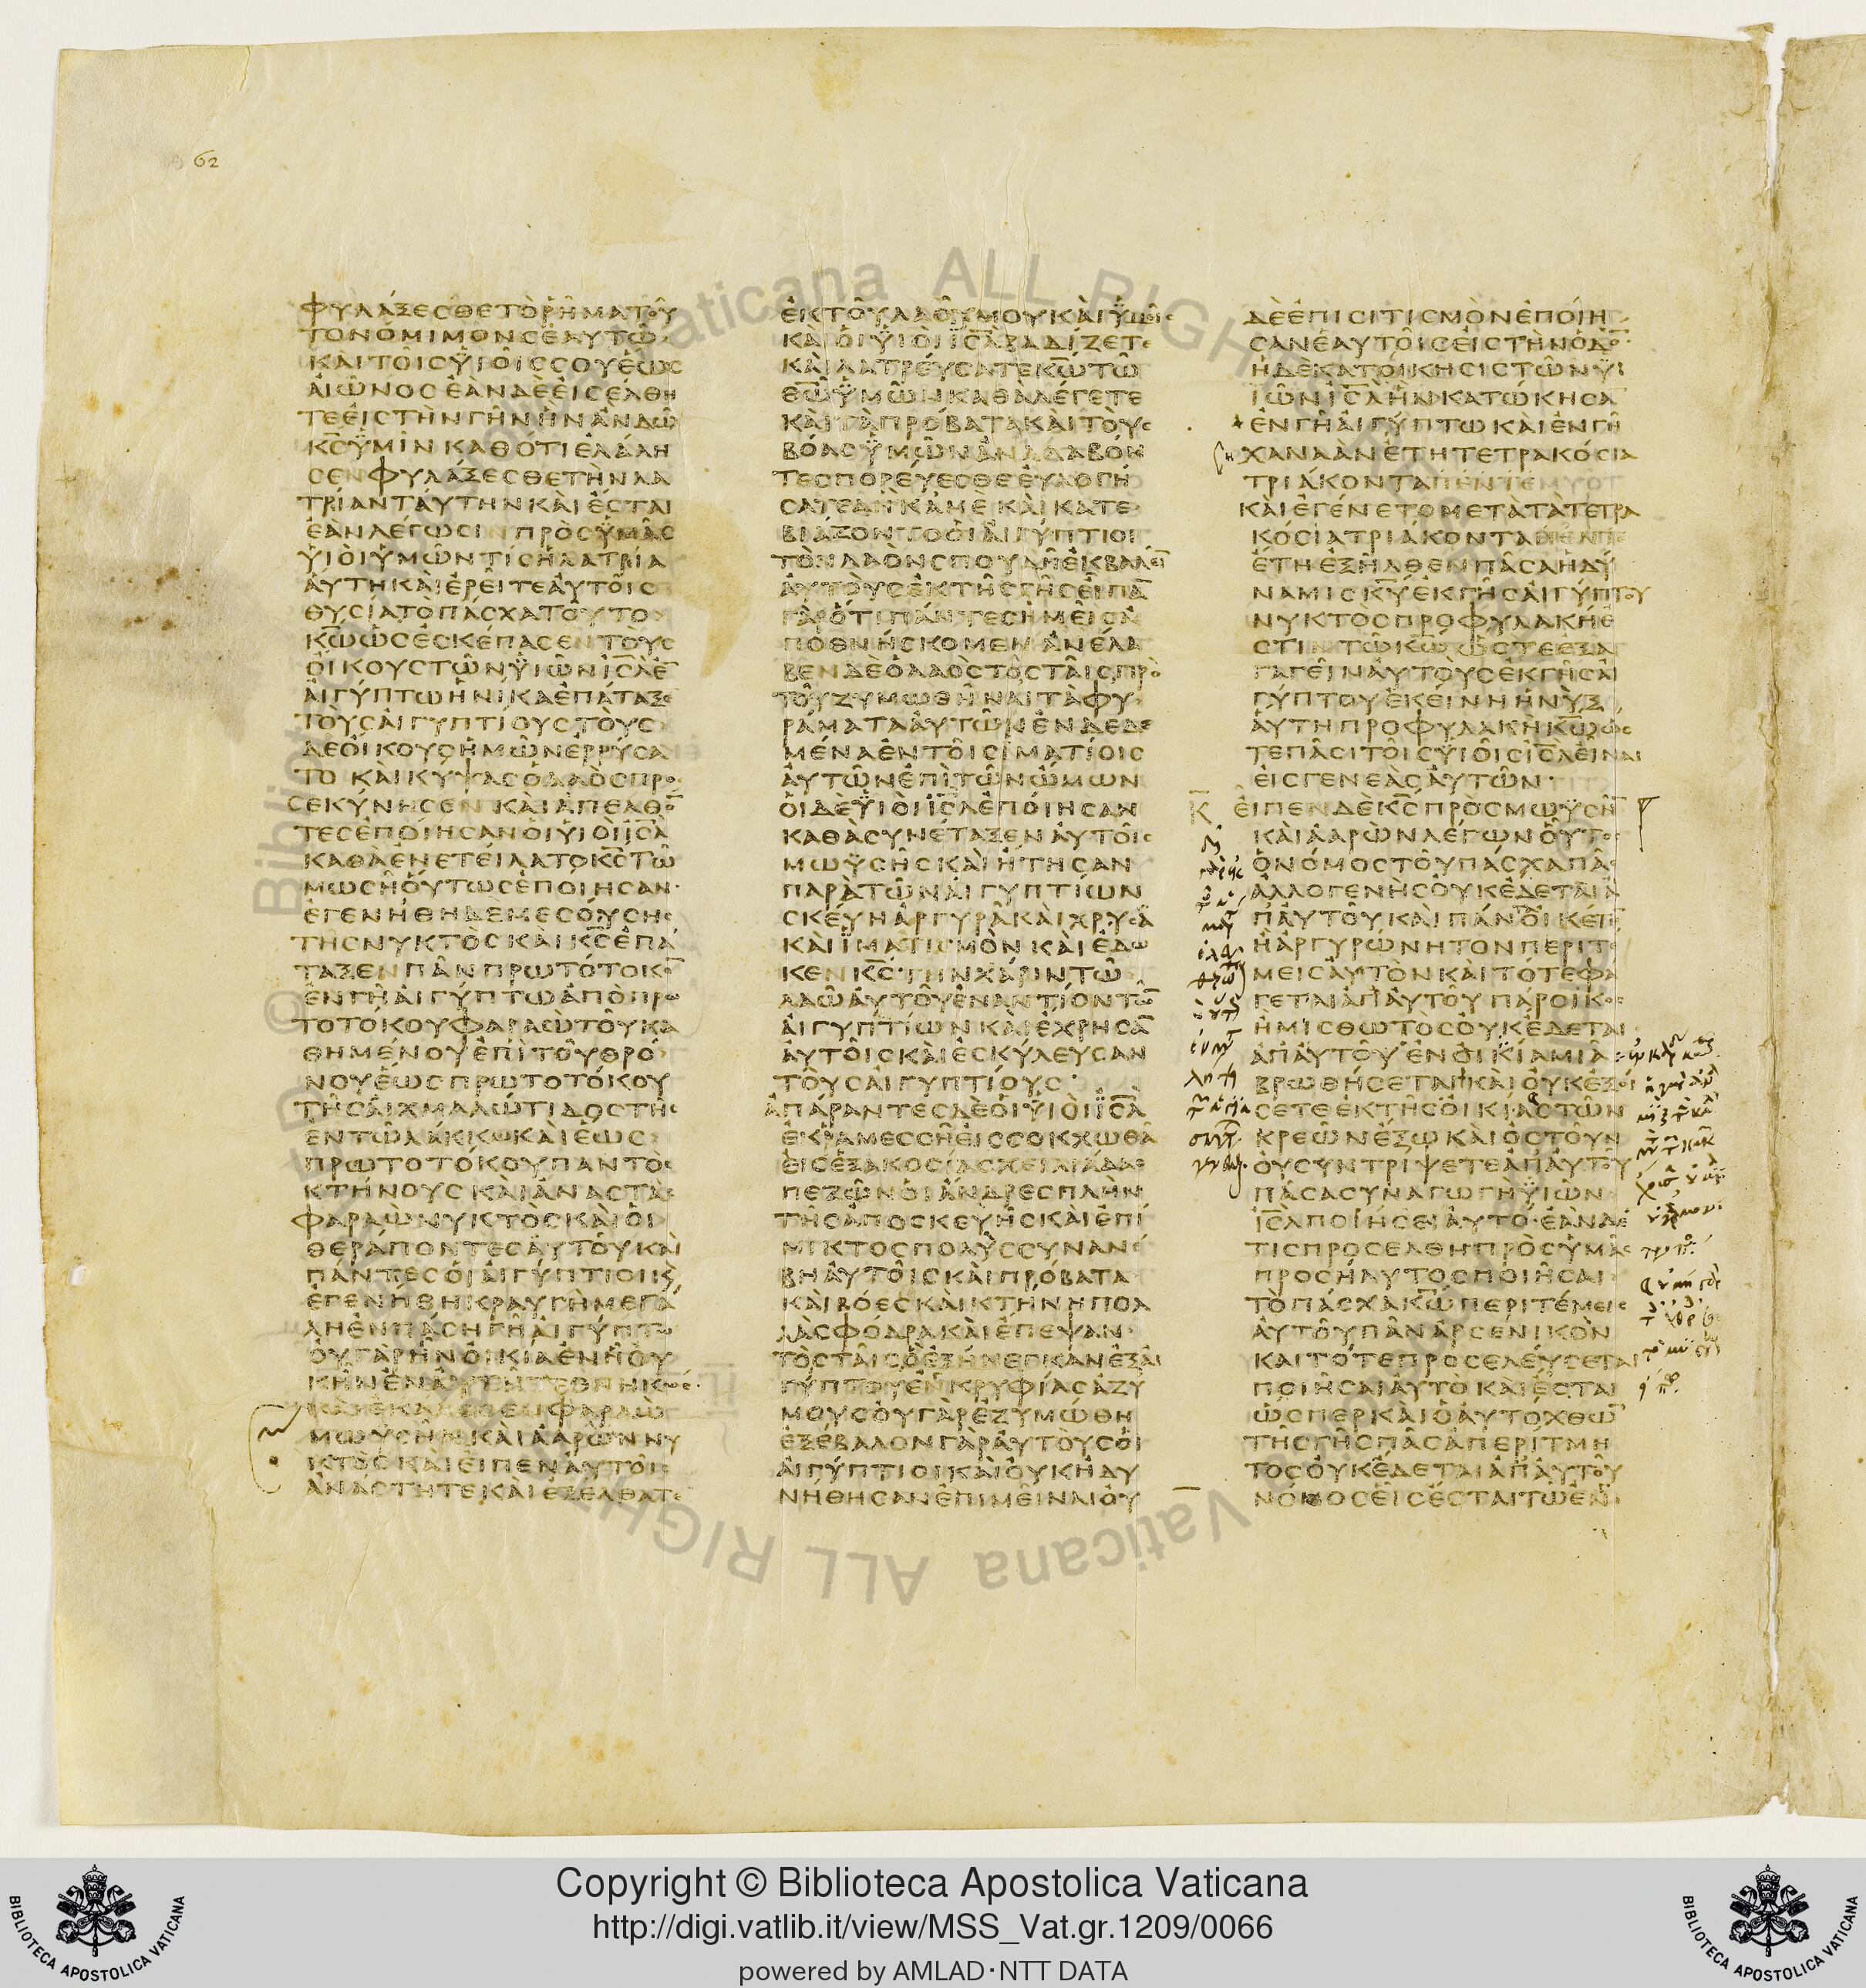 62
ΦΥΛΑΞΕΣΘΕΤΟΡΗΜΑΤΟΥ
ΤΟΝΟΜΙΜΟΝΣΕΑΥΤΩ
ΚΑΙΤΟΙΣΥΙΟΙΣΣΟΥΕΩΣ
ΑΙΩΝΟΣΕΑΝΔΕΕΙΣΕΛΘΗ
ΤΕΕΙΣΤΗΝΓΗΝΗΝΑΝΔΩ
ΚΣΥΜΙΝΚΑΘΟΤΙΕΛΑΛΗ
ΣΕΝΦΥΛΑΞΕΣΘΕΤΗΝΛΑ
ΤΡΙΑΝΤΑΥΤΗΝΚΑΙΕΣΤΑΙ
ΕΑΝΛΕΓΩΣΙΝΠΡΟΣΥΜΑΣ
ΥΙΟΙΥΜΩΝΤΙΣΗΛΑΤΡΙΑ
ΑΥΤΗΚΑΙΕΡΕΙΤΕΑΥΤΟΙΣ
ΘΥΣΙΑΤΟΠΑΣΧΑΤΟΥΤΟ
ΚΩΩΣΕΣΚΕΠΑΣΕΝΤΟΥΣ
ΟΙΚΟΥΣΤΩΝΥΙΩΝΙΣΛΕ
ΑΙΓΥΠΤΩΗΝΙΚΑΕΠΑΤΑΞΕ
ΤΟΥΣΑΙΓΥΠΤΙΟΥΣΤΟΥΣ
ΔΕΟΙΚΟΥΣΗΜΩΝΕΡΡΥΣΑ
ΤΟΚΑΙΚΥΨΑΣΟΛΑΟΣΠΡΟ
ΣΕΚΥΝΗΣΕΝΚΑΙΑΠΕΛΘΟ
ΤΕΣΕΠΟΙΗΣΑΝΟΙΥΙΟΙΙΣΛ
ΚΑΘΑΕΝΕΤΕΙΛΑΤΟΚΣΤΩ
ΜΩΣΗΟΥΤΩΣΕΠΟΙΗΣΑΝ
ΕΓΕΝΗΘΗΔΕΜΕΣΟΥΣΗΣ
ΤΗΣΝΥΚΤΟΣΚΑΙΚΣΕΠΑ
ΤΑΞΕΝΠΑΝΠΡΩΤΟΤΟΚΟ
ΕΝΓΗΑΙΓΥΠΤΩΑΠΟΠΡΩ
ΤΟΤΟΚΟΥΦΑΡΑΩΤΟΥΚΑ
ΘΗΜΕΝΟΥΕΠΙΤΟΥΘΡΟ
ΝΟΥΕΩΣΠΡΩΤΟΤΟΚΟΥ
ΤΗΣΑΙΧΜΑΛΩΤΙΔΟΣΤΗΣ
ΕΝΤΩΛΑΚΚΩΚΑΙΕΩΣ
ΠΡΩΤΟΤΟΚΟΥΠΑΝΤΟΣ
ΚΤΗΝΟΥΣΚΑΙΑΝΑΣΤΑΣ
ΦΑΡΑΩΝΥΚΤΟΣΚΑΙΟΙ
ΘΕΡΑΠΟΝΤΕΣΑΥΤΟΥΚΑΙ
ΠΑΝΤΕΣΟΙΑΙΓΥΠΤΙΟΙΚ
ΕΓΕΝΗΘΗΚΡΑΥΓΗΜΕΓΑ
ΛΗΕΝΠΑΣΗΓΗΑΙΓΥΠΤΩ
ΟΥΓΑΡΗΝΟΙΚΙΑΕΝΗΟΥ
ΚΗΝΕΝΑΥΤΗΤΕΘΝΗΚΩΣ
ΚΑΙΕΚΑΛΕΣΕΝΦΑΡΑΩ
ΜΩΥΣΗΝΚΑΙΑΑΡΩΝΝΥ
ΚΤΟΣΚΑΙΕΙΠΕΝΑΥΤΟΙΣ
ΑΝΑΣΤΗΤΕΚΑΙΕΞΕΛΘΑΤΕ
ΕΚΤΟΥΛΑΟΥΜΟΥΚΑΙΥΜΕΙΣ
ΚΑΙΟΙΥΙΟΙΙΣΛΒΑΔΙΖΕΤΕ
ΚΑΙΛΑΤΡΕΥΣΑΤΕΚΩΤΩ
ΘΩΥΜΩΝΚΑΘΑΛΕΓΕΤΕ
ΚΑΙΤΑΠΡΟΒΑΤΑΚΑΙΤΟΥΣ
ΒΟΑΣΥΜΩΝΑΝΑΛΑΒΟΝ
ΤΕΣΠΟΡΕΥΕΣΘΕΕΥΛΟΓΗ
ΣΑΤΕΔΗΚΑΜΕΚΑΙΚΑΤΕ
ΒΙΑΖΟΝΤΟΟΙΑΙΓΥΠΤΙΟΙ
ΤΟΝΛΑΟΝΣΠΟΥΔΗΕΚΒΑΛΕΙ
ΑΥΤΟΥΣΕΚΤΗΣΓΗΣΕΙΠΑ
ΓΑΡΟΤΙΠΑΝΤΕΣΗΜΕΙΣΑ
ΠΟΘΝΗΣΚΟΜΕΝΑΝΕΛΑ
ΒΕΝΔΕΟΛΑΟΣΤΟΣΤΑΙΣΠΡΟ
ΤΟΥΖΥΜΩΘΗΝΑΙΤΑΦΥ
ΡΑΜΑΤΑΑΥΤΩΝΕΝΔΕΔΕ
ΜΕΝΑΕΝΤΟΙΣΙΜΑΤΙΟΙΣ
ΑΥΤΩΝΕΠΙΤΩΝΩΜΩΝ
ΟΙΔΕΥΙΟΙΙΣΛΕΠΟΙΗΣΑΝ
ΚΑΘΑΣΥΝΕΤΑΞΕΝΑΥΤΟΙΣ
ΜΩΥΣΗΣΚΑΙΗΤΗΣΑΝ
ΠΑΡΑΤΩΝΑΙΓΥΠΤΙΩΝ
ΣΚΕΥΗΑΡΓΥΡΑΚΑΙΧΡΥΣΑ
ΚΑΙΙΜΑΤΙΣΜΟΝΚΑΙΕΔΩ
ΚΕΝΚΣΤΗΝΧΑΡΙΝΤΩ
ΛΑΩΑΥΤΟΥΕΝΑΝΤΙΟΝΤΩ
ΑΙΓΥΠΤΙΩΝΚΑΙΕΧΡΗΣΑ
ΑΥΤΟΙΣΚΑΙΕΣΚΥΛΕΥΣΑΝ
ΤΟΥΣΑΙΓΥΠΤΙΟΥΣ
ΑΠΑΡΑΝΤΕΣΔΕΟΙΥΙΟΙΙΣΛ
ΕΚΡΑΜΕΣΣΗΕΙΣΣΟΚΧΩΘΑ
ΕΙΣΕΞΑΚΟΣΙΑΣΧΕΙΛΙΑΔΑΣ
ΠΕΖΩΝΟΙΑΝΔΡΕΣΠΛΗΝ
ΤΗΣΑΠΟΣΚΕΥΗΣΚΑΙΕΠΙ
ΜΙΚΤΟΣΠΟΛΥΣΣΥΝΑΝΕ
ΒΗΑΥΤΟΙΣΚΑΙΠΡΟΒΑΤΑ
ΚΑΙΒΟΕΣΚΑΙΚΤΗΝΗΠΟΛ
ΛΑΣΦΟΔΡΑΚΑΙΕΠΕΨΑΝ
ΤΟΣΤΑΙΣΟΕΞΗΝΕΓΚΑΝΕΞΑΙ
ΓΥΠΤΟΥΕΝΚΡΥΦΙΑΣΑΖΥ
ΜΟΥΣΟΥΓΑΡΕΖΥΜΩΘΗ
ΕΞΕΒΑΛΟΝΓΑΡΑΥΤΟΥΣΟΙ
ΑΙΓΥΠΤΙΟΙΚΑΙΟΥΚΗΔΥ
ΝΗΘΗΣΑΝΕΠΙΜΕΙΝΑΙΟΥ
ΔΕΕΠΙΣΙΤΙΣΜΟΝΕΠΟΙΗ
ΣΑΝΕΑΥΤΟΙΣΕΙΣΤΗΝΟΔΟ
ΗΔΕΚΑΤΟΙΚΗΣΙΣΤΩΝΥΙ
ΙΩΝΙΣΛΗΝΚΑΤΩΚΗΣΑ
ΕΝΓΗΑΙΓΥΠΤΩΚΑΙΕΝΓΗ
ΧΑΝΑΑΝΕΤΗΤΕΤΡΑΚΟΣΙΑ
ΤΡΙΑΚΟΝΤΑΠΕΝΤΕ
ΚΑΙΕΓΕΝΕΤΟΜΕΤΑΤΑΤΕΤΡΑ
ΚΟΣΙΑΤΡΙΑΚΟΝΤΑΠΕΝΤΕ
ΕΤΗΕΞΗΛΘΕΝΠΑΣΑΗΔΥ
ΝΑΜΙΣΚΥΕΚΓΗΣΑΙΓΥΠΤΟΥ
ΝΥΚΤΟΣΠΡΟΦΥΛΑΚΗΕ
ΣΤΙΝΤΩΚΩΩΣΤΕΕΞΑ
ΓΑΓΕΙΝΑΥΤΟΥΣΕΚΓΗΣΑΙ
ΓΥΠΤΟΥΕΚΕΙΝΗΗΝΥΞ
ΑΥΤΗΠΡΟΦΥΛΑΚΗΚΩΩΣ
ΤΕΠΑΣΙΤΟΙΣΥΙΟΙΣΙΣΛΕΙΝΑΙ
ΕΙΣΓΕΝΕΑΣΑΥΤΩΝ
Κ ΕΙΠΕΝΔΕΚΣΠΡΟΣΜΩΥΣΗ
ΚΑΙΑΑΡΩΝΛΕΓΩΝΟΥΤΟΣ
ΟΝΟΜΟΣΤΟΥΠΑΣΧΑΠΑΣ
ΑΛΛΟΓΕΝΗΣΟΥΚΕΔΕΤΑΙΑ
ΠΑΥΤΟΥΚΑΙΠΑΝΟΙΚΕΤΗ
ΗΑΡΓΥΡΩΝΗΤΟΝΠΕΡΙΤΕ
ΜΕΙΣΑΥΤΟΝΚΑΙΤΟΤΕΦΑ
ΓΕΤΑΙΑΠΑΥΤΟΥΠΑΡΟΙΚΟΣ
ΗΜΙΣΘΩΤΟΣΟΥΚΕΔΕΤΑΙ
ΑΠΑΥΤΟΥΕΝΟΙΚΙΑΜΙΑ
ΒΡΩΘΗΣΕΤΑΙΚΑΙΟΥΚΕΞΟΙ
ΣΕΤΕΕΚΤΗΣΟΙΚΙΑΣΤΩΝ
ΚΡΕΩΝΕΞΩΚΑΙΟΣΤΟΥΝ
ΟΥΣΥΝΤΡΙΨΕΤΕΑΠΑΥΤΟΥ
ΠΑΣΑΣΥΝΑΓΩΓΗΥΙΩΝ
ΙΣΛΠΟΙΗΣΕΙΑΥΤΟΕΑΝΔΕ
ΤΙΣΠΡΟΣΕΛΘΗΠΡΟΣΥΜΑΣ
ΠΡΟΣΗΛΥΤΟΣΠΟΙΗΣΑΙ
ΤΟΠΑΣΧΑΚΩΠΕΡΙΤΕΜΕΙΣ
ΑΥΤΟΥΠΑΝΑΡΣΕΝΙΚΟΝ
ΚΑΙΤΟΤΕΠΡΟΣΕΛΕΥΣΕΤΑΙ
ΠΟΙΗΣΑΙΑΥΤΟΚΑΙΕΣΤΑΙ
ΩΣΠΕΡΚΑΙΟΑΥΤΟΧΘΩ
ΤΗΣΓΗΣΠΑΣΑΠΕΡΙΤΜΗ
ΤΟΣΟΥΚΕΔΕΤΑΙΑΠΑΥΤΟΥ
ΝΟΜΟΣΕΙΣΕΣΤΑΙΤΩΕΝ
© Biblioteca Apostolica Vaticana ALL RIGHTS
Copyright © Biblioteca Apostolica Vaticana
http://digi.vatlib.it/view/MSS_Vat.gr.1209/0066
powered by AMLAD·NTT DATA
BIBLIOTECA APOSTOLICA VATICANA
BIBLIOTECA APOSTOLICA VATICANA